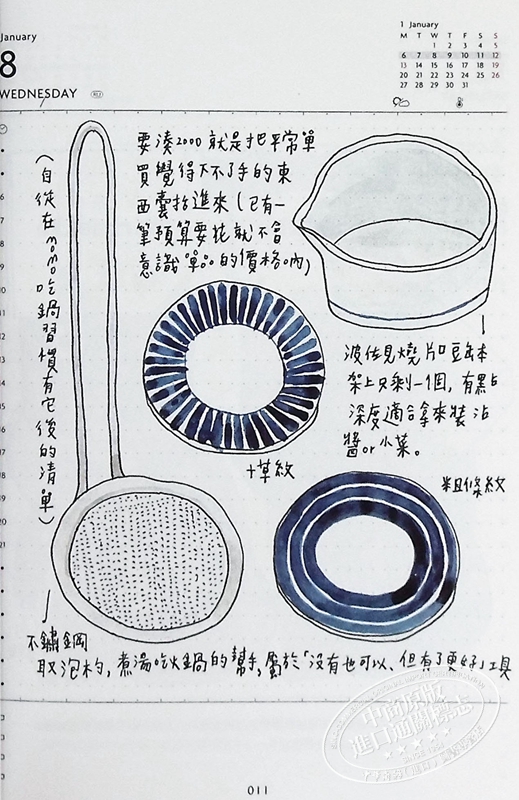 January
8
WEDNESDAY
1 January
M T W T F S S
1 2 3 4 5
6 7 8 9 10 11 12
13 14 15 16 17 18 19
20 21 22 23 24 25 26
27 28 29 30 31
要湊2000就是把平常單
買覺得下不了手的東
西囊括進來(已有一
筆預算要花就不會
意識單品的價格吶)
(自從在momo吃鍋習慣有它後的清單)
波佐見燒片口豆缽本
架上只剩一個,有點
深度適合拿來裝沾
醬or小菜。
十草紋
粗條紋
不鏽鋼
取泡杓,煮湯吃火鍋的幫手,屬於「沒有也可以、但有了更好」工具
6
7
8
9
10
11
12
13
14
15
16
17
18
19
20
21
中商原版
進口通關標志
011